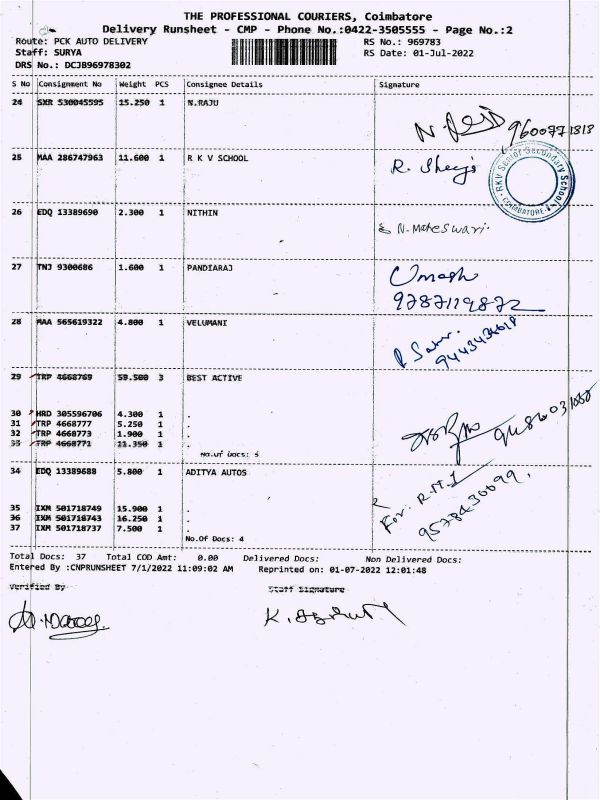 THE PROFESSIONAL COURIERS, Coimbatore
Delivery Runsheet - CMP - Phone No.:0422-3505555 - Page No.:2
Route: PCK AUTO DELIVERY RS No.: 969783
Staff: SURYA RS Date: 01-Jul-2022
DRS No.: DCJB96978302
S No Consignment No Weight PCS Consignee Details Signature
24 SXR 530045595 15.250 1 N.RAJU
9600771813
25 MAA 286747963 11.600 1 R K V SCHOOL
RKV Senior Secondary School
COIMBATORE
26 EDQ 13389690 2.300 1 NITHIN
N. Maheswari.
27 TNJ 9300686 1.600 1 PANDIARAJ
Umesh
9787119872
28 MAA 565619322 4.800 1 VELUMANI
29 TRP 4668769 59.500 3 BEST ACTIVE
30 HRD 305596706 4.300 1 .
31 TRP 4668777 5.250 1 .
32 TRP 4668773 1.900 1 .
33 TRP 4668771 11.350 1 .
No.Of Docs: 5
34 EDQ 13389688 5.800 1 ADITYA AUTOS
For. R.M.1
9578430099.
35 IXM 501718749 15.900 1 .
36 IXM 501718743 16.250 1 .
37 IXM 501718737 7.500 1 .
No.Of Docs: 4
Total Docs: 37 Total COD Amt: 0.00 Delivered Docs: Non Delivered Docs:
Entered By :CNPRUNSHEET 7/1/2022 11:09:02 AM Reprinted on: 01-07-2022 12:01:48
Verified By Staff Signature